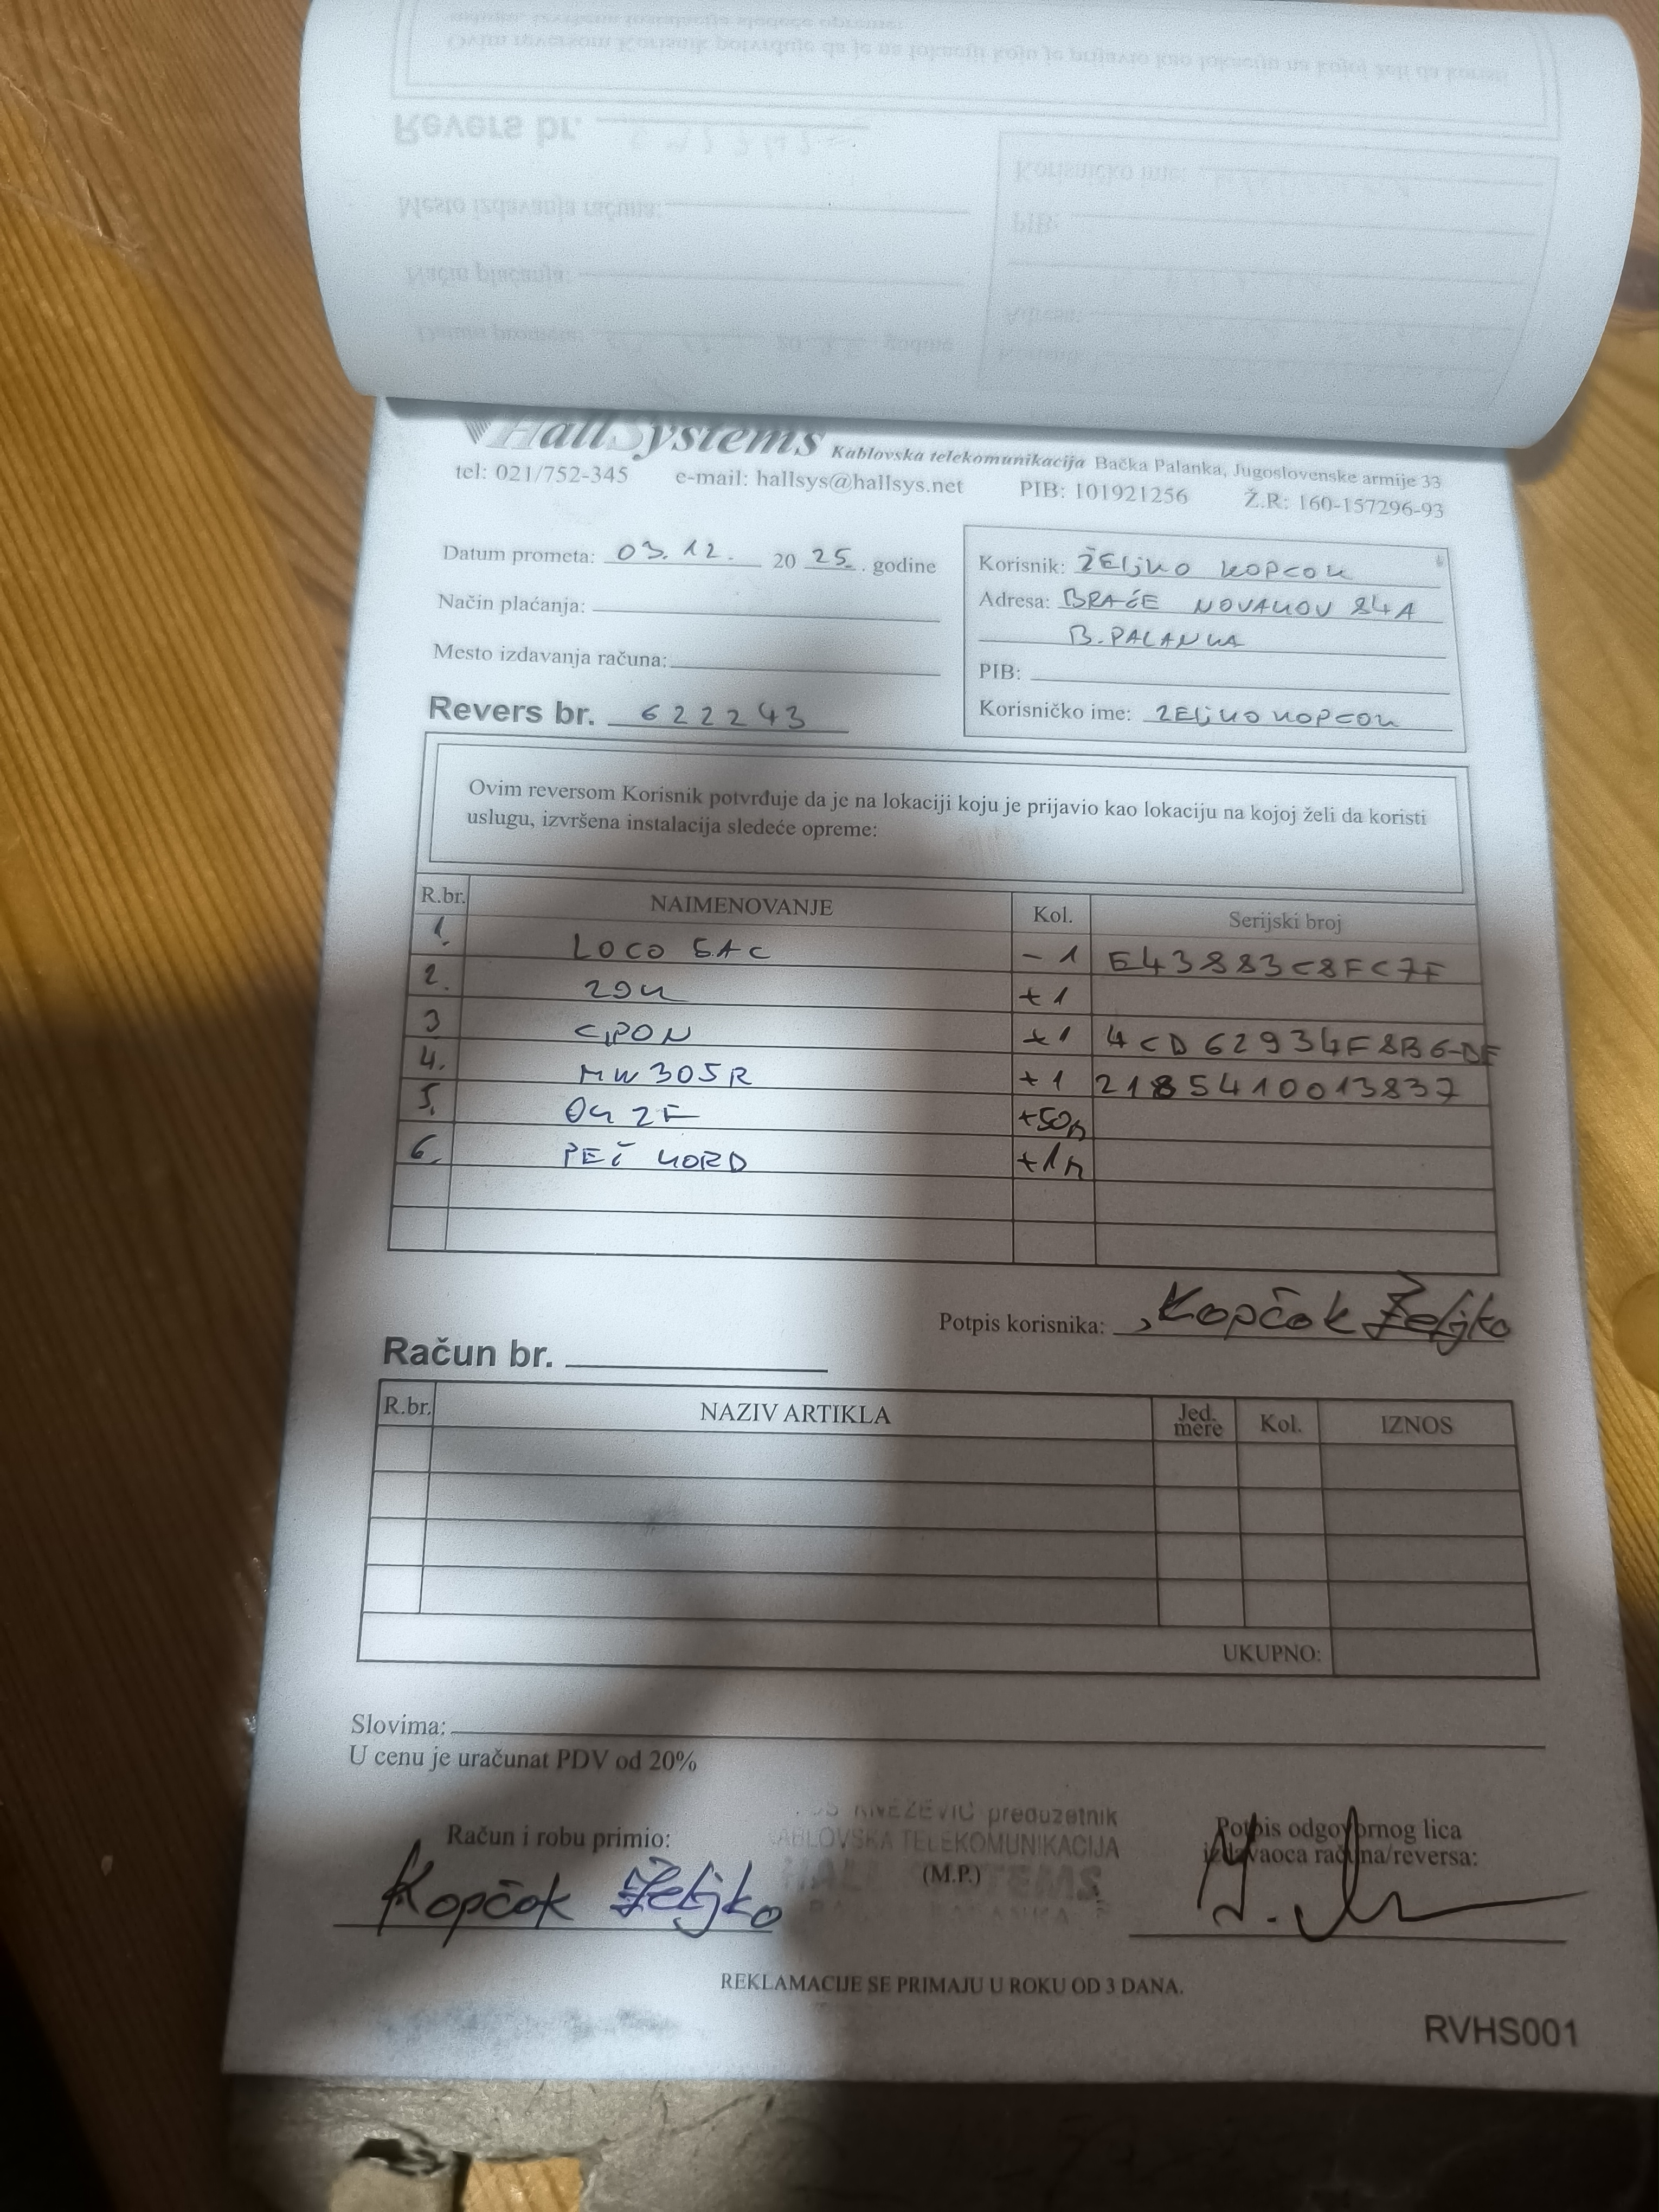 HallSystems Kablovska telekomunikacija Bačka Palanka, Jugoslovenske armije 33
tel: 021/752-345 e-mail: hallsys@hallsys.net PIB: 101921256 Ž.R: 160-157296-93
Datum prometa: 03.12. 20 25. godine
Način plaćanja:
Mesto izdavanja računa:
Revers br. 622243
Korisnik: ŽELJKO KOPCOK
Adresa: BRAĆE NOVAKOV 84A
B. PALANKA
PIB:
Korisničko ime: ZELJKOKOPCOK
Ovim reversom Korisnik potvrđuje da je na lokaciji koju je prijavio kao lokaciju na kojoj želi da koristi
uslugu, izvršena instalacija sledeće opreme:
R.br. NAIMENOVANJE Kol. Serijski broj
1. LOCO 5AC - 1 E43883C8FC7F
2. ZOK +1
3 GPON +1 4CD62934F8B6-DF
4. MW305R +1 2185410013837
5. OK 2F +50m
6. PEČ KORD +1m
Potpis korisnika: Kopčok Željko
Račun br.
R.br. NAZIV ARTIKLA Jed. mere Kol. IZNOS
UKUPNO:
Slovima:
U cenu je uračunat PDV od 20%
KNEŽEVIĆ preduzetnik
KABLOVSKA TELEKOMUNIKACIJA
HALL SYSTEMS
Račun i robu primio: (M.P.) Potpis odgovornog lica
izdavaoca računa/reversa:
Kopčok Željko
REKLAMACIJE SE PRIMAJU U ROKU OD 3 DANA.
RVHS001